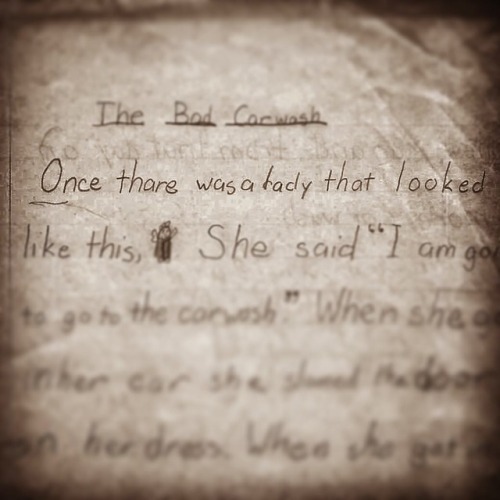 The Bad Carwash
Once thare was a lady that looked
like this, She said "I am goi
to go to the carwash." When she
in her car she slamed the door
on her dress. When she got